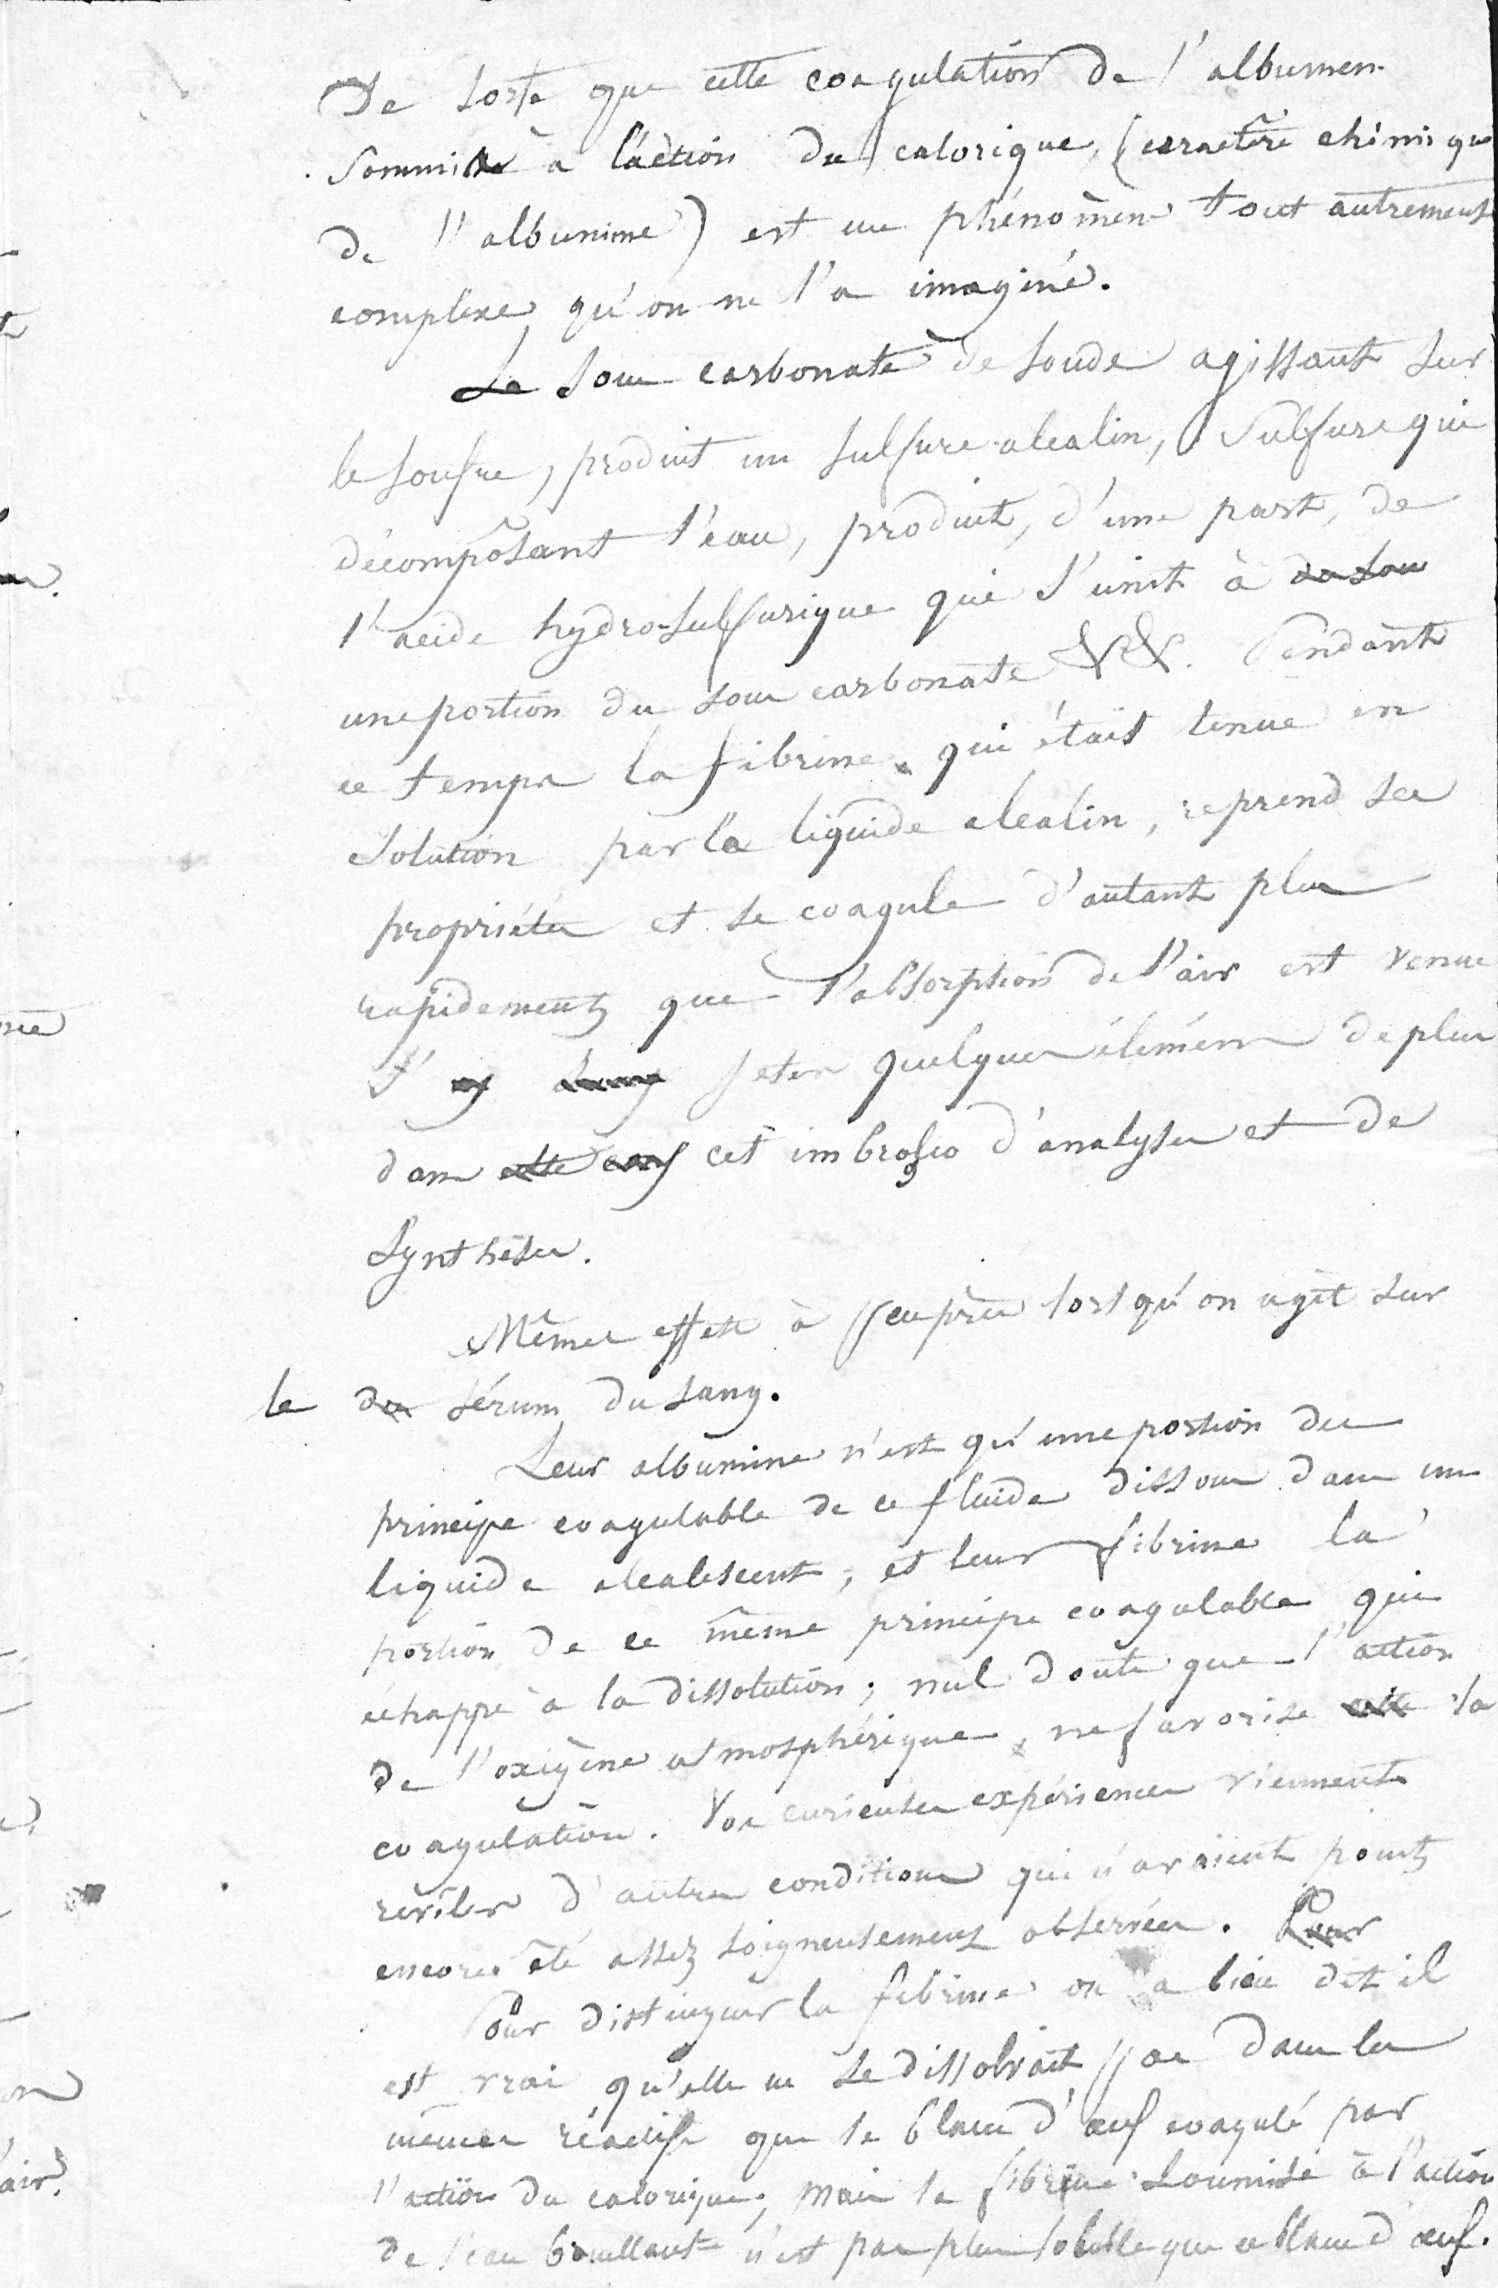 De sorte que cette coagulation de l'albumen
soumise à l'action du calorique, (caractère chimique
de l'albumine) est un phénomène tout autrement
complexe qu'on ne l'a imaginé.
Le sous carbonate de soude agissant sur
le soufre, produit un sulfure alcalin, sulfure qui
décomposant l'eau, produit, d'une part, de
l'acide hydro-sulfurique qui s'unit à du sou
une portion du sous carbonate &&. Pendant
ce temps la fibrine, qui était tenue en
solution par le liquide alcalin, reprend ses
propriétés et se coagule d'autant plus
rapidement que l'absorption de l'air est venue
jeter quelques élémens de plus
dans cette cet imbroglio d'analyses et de
synthèses.
Mêmes effets à peuprès lorsqu'on agit sur
le du sérum du sang.
Leur albumine n'est qu'une portion du
principe coagulable de ce fluide dissous dans un
liquide alcalescent, et leur fibrine la
portion de ce même principe coagulable qui
échappe à la dissolution; nul doute que l'action
de l'oxigène atmosphérique, ne favorise cette la
coagulation. Vos curieuses expériences viennent
révéler d'autres conditions qui n'avaient point
encore été assez soigneusement observées. Pour
Pour distinguer la fibrine on a bien dit il
est vrai qu'elle ne se dissolvait pas dans les
mêmes réactifs que le blanc d'œuf coagulé par
l'action du calorique; mais la fibrine soumise à l'action
de l'eau bouillante n'est pas plus soluble que ce blanc d'œuf.